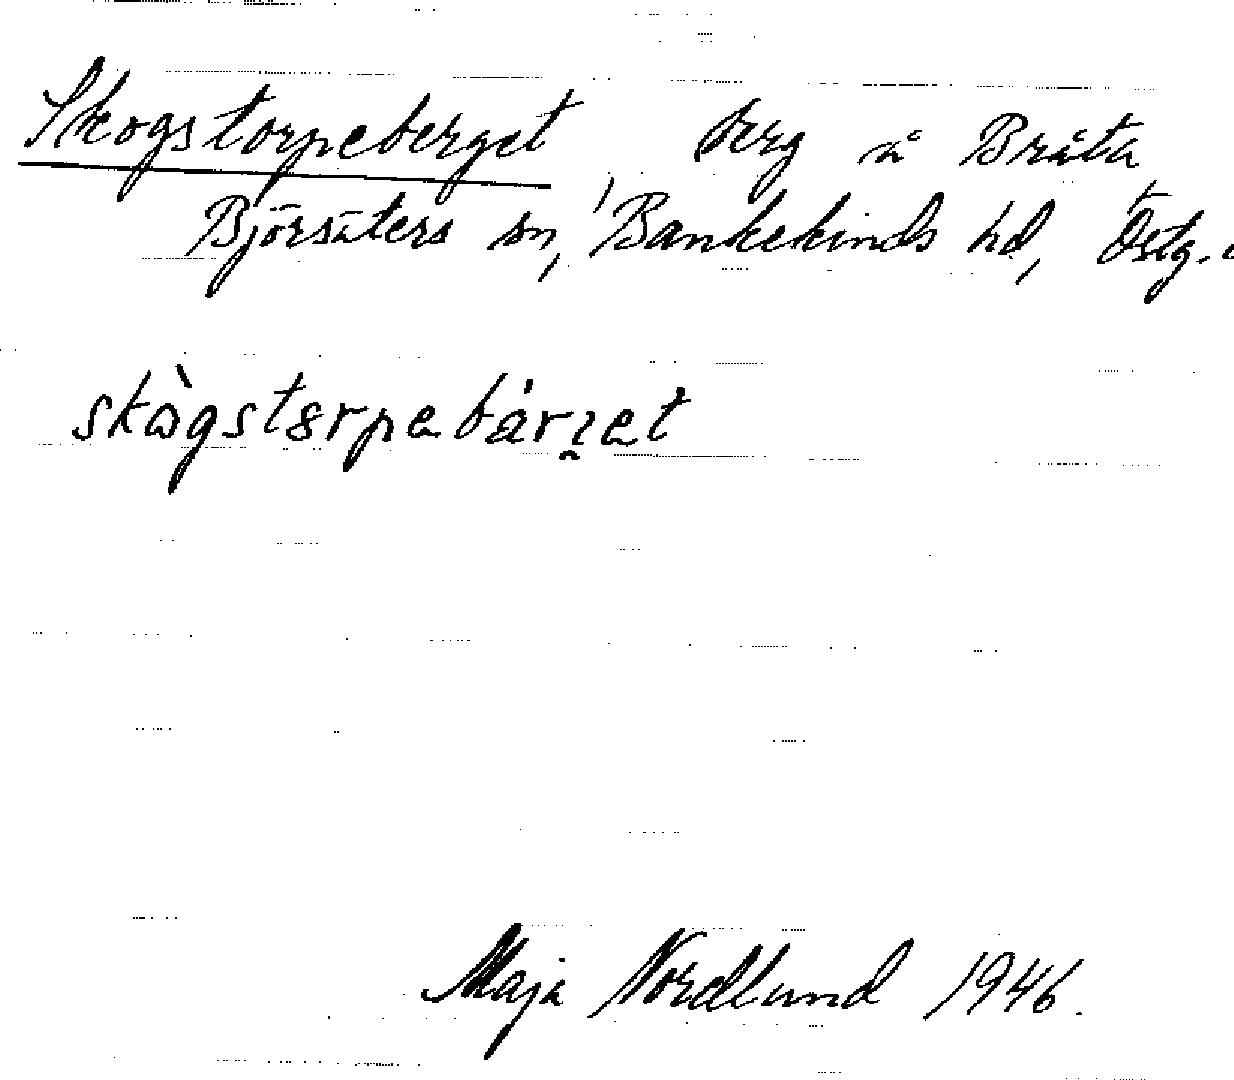 Skogstorpeberget berg å Bråta
Björsäters sn, Bankekinds hd, Östg.
skògstorpebárɀet
Maja Nordlund 1946.